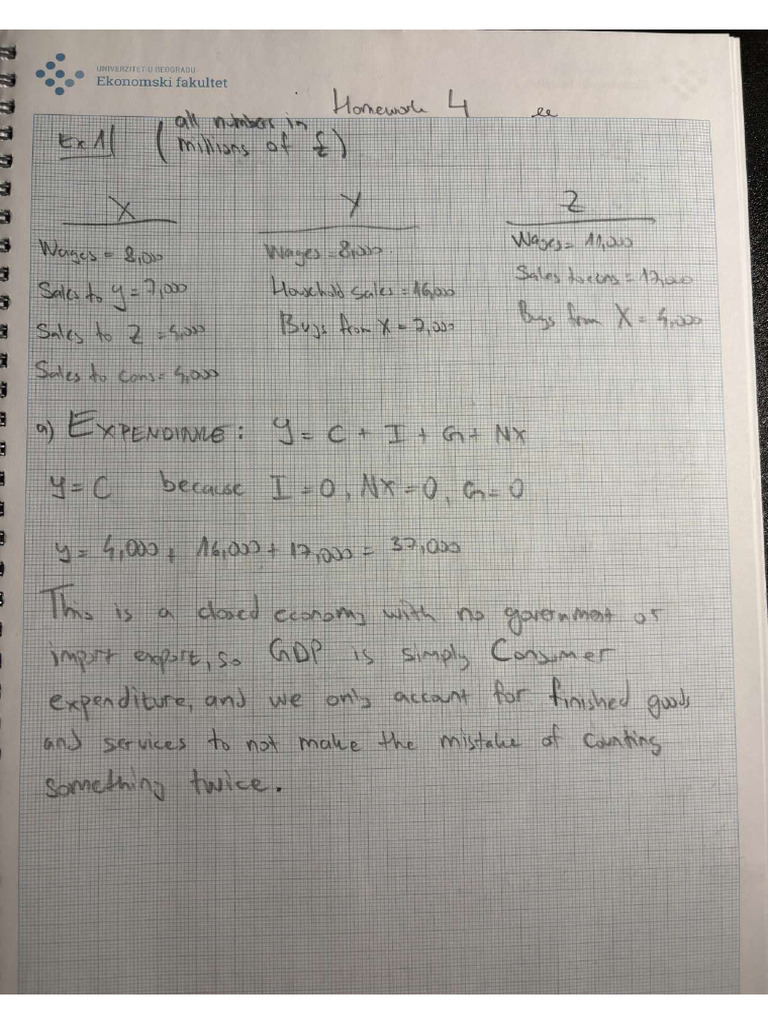 UNIVERZITET U BEOGRADU
Ekonomski fakultet
Homework 4
Ex 1) (all numbers in
millions of £)
X
Wages = 8,000
Sales to y = 7,000
Sales to Z = 4,000
Sales to cons = 4,000
Y
Wages = 8,000
Household sales = 16,000
Buys from X = 7,000
Z
Wages = 11,000
Sales to cons = 17,000
Buys from X = 4,000
a) EXPENDITURE: y = C + I + G + NX
y = C because I = 0, NX = 0, G = 0
y = 4,000 + 16,000 + 17,000 = 37,000
This is a closed economy with no government or
import export, so GDP is simply Consumer
expenditure, and we only account for finished goods
and services to not make the mistake of counting
something twice.